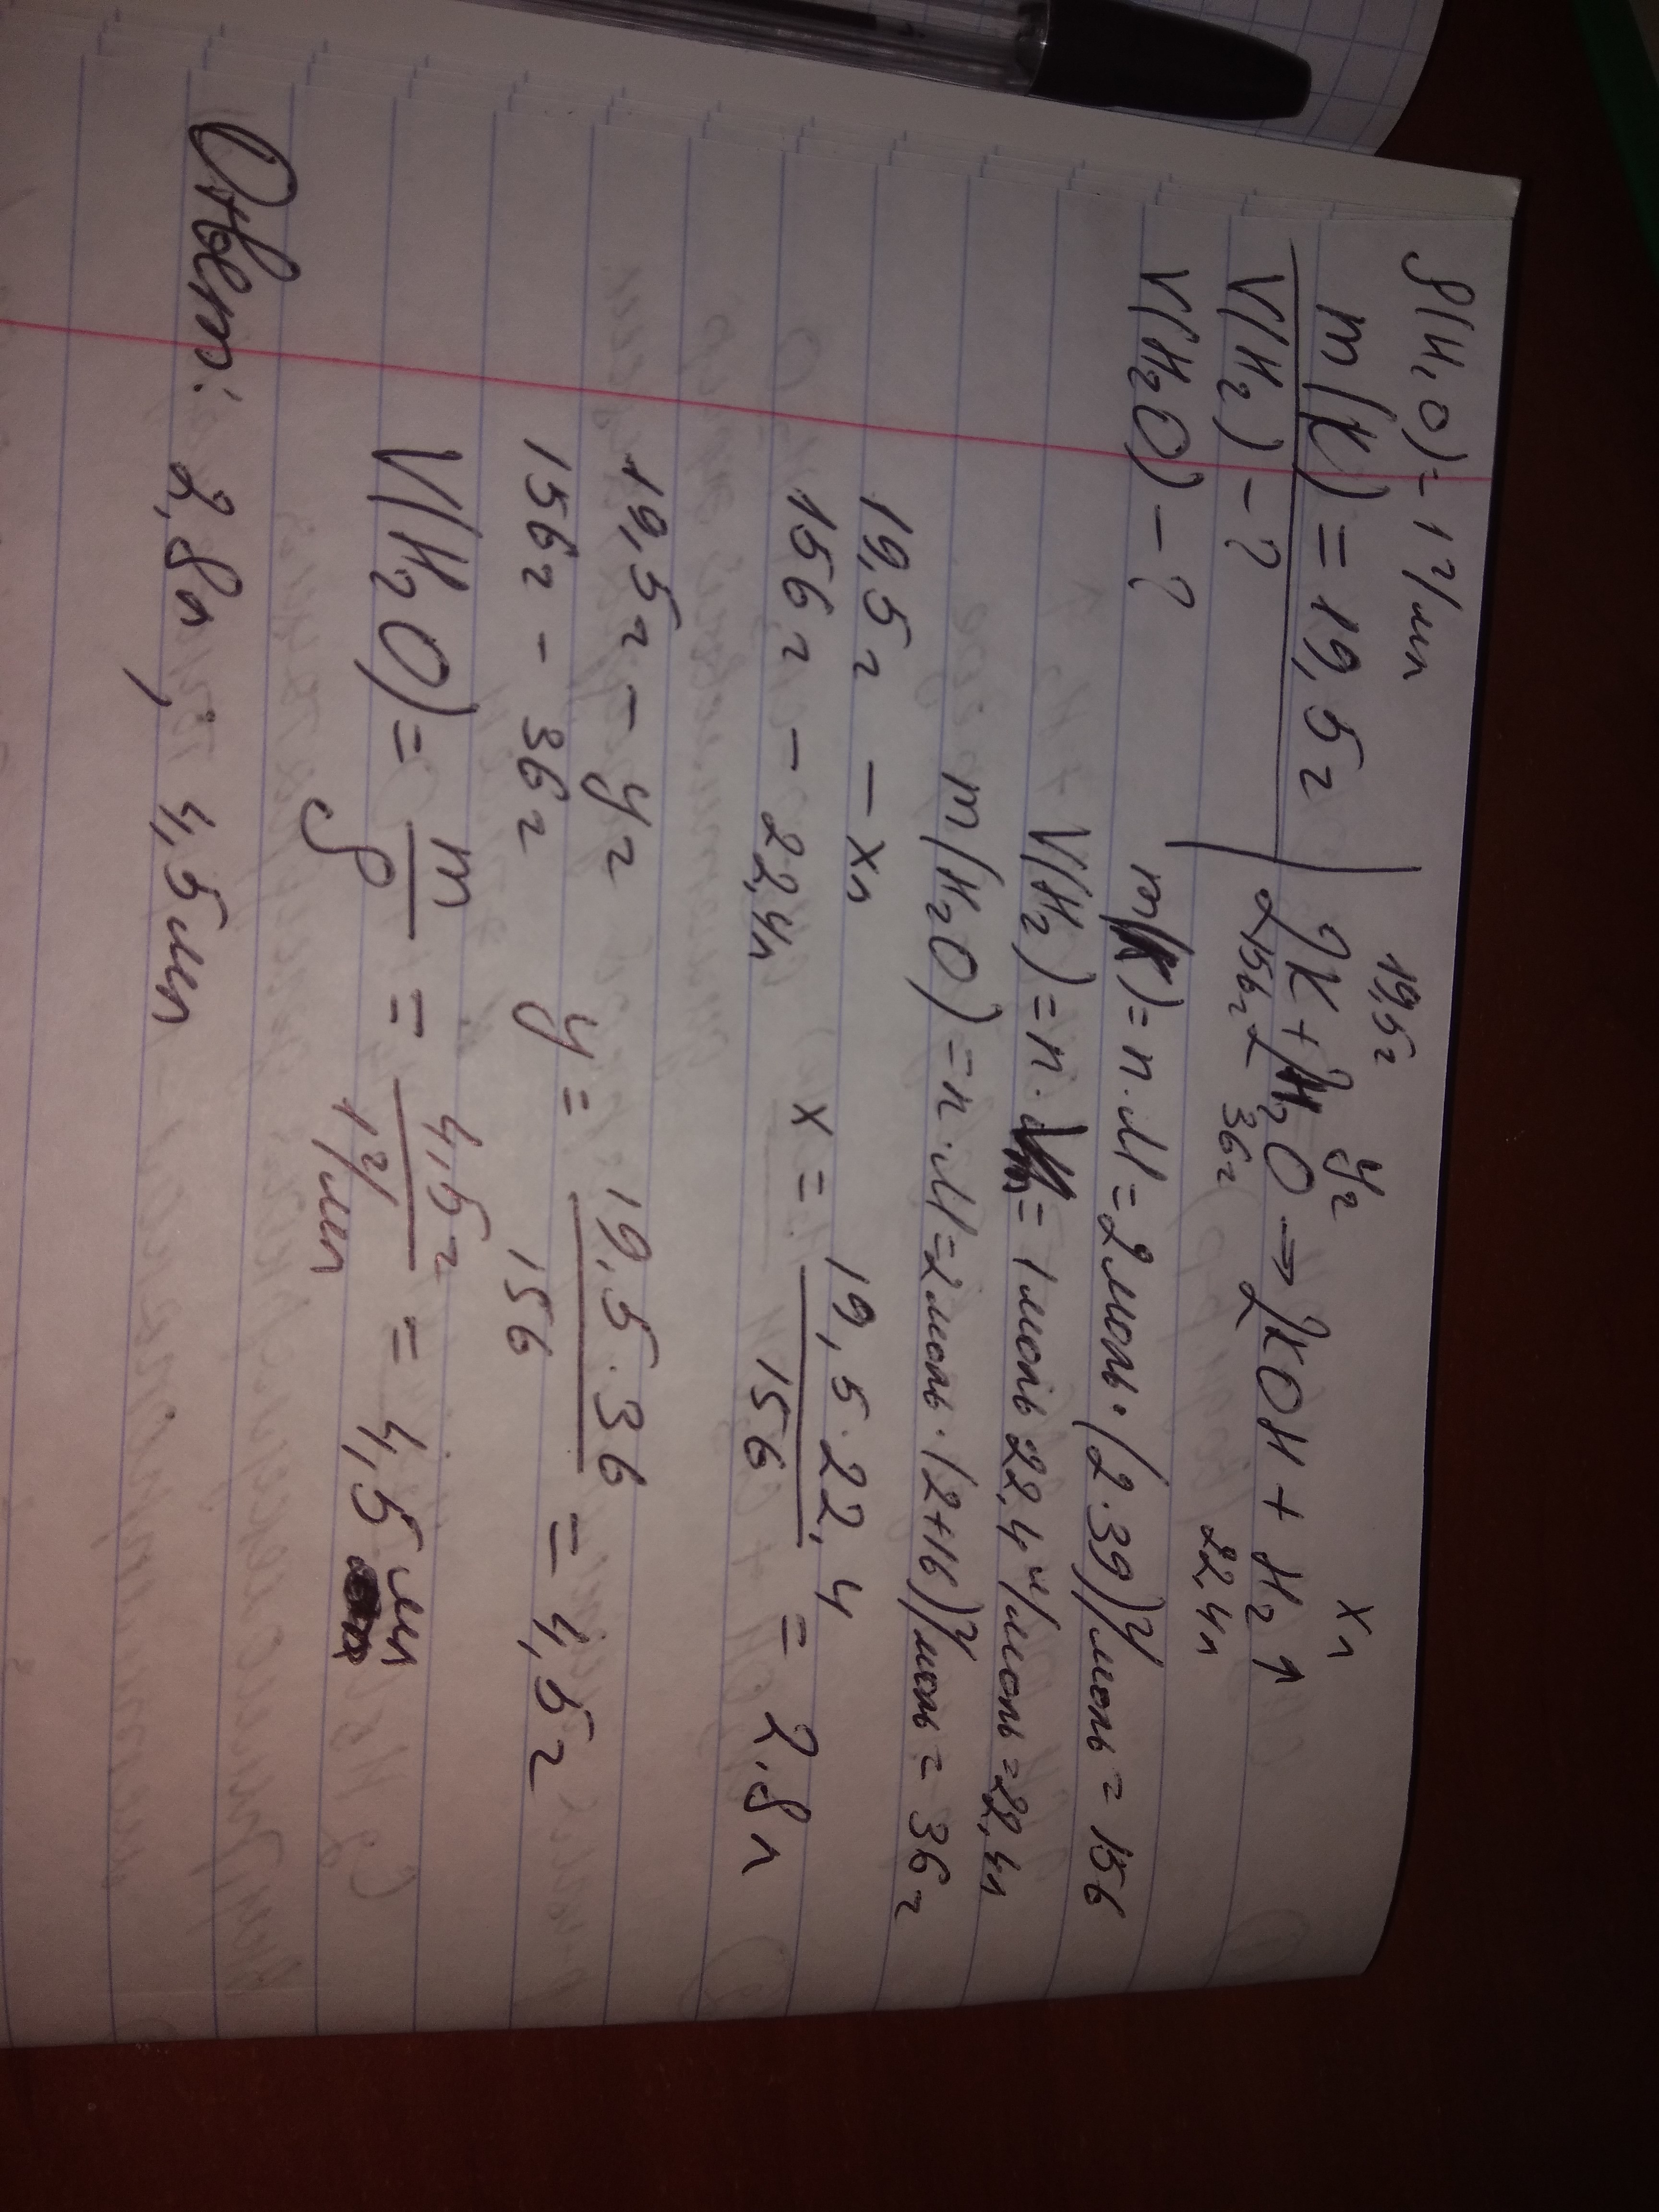 ρ(H₂O)=1 г/мл
m(K) = 19,5г
V(H₂) - ?
V(H₂O) - ?
19,5г yг xл
2K + 2H₂O → 2KOH + H₂↑
156г 36г 22,4л
m(K) = n·M = 2моль·(2·39)г/моль = 156
V(H₂) = n·Vm = 1моль 22,4 л/моль = 22,4л
m(H₂O) = n·M = 2моль·(2+16)г/моль = 36г
19,5г - xл
156г - 22,4л
x = 19,5·22,4 / 156 = 2,8л
19,5г - yг
156г - 36г
y = 19,5·36 / 156 = 4,5г
V(H₂O) = m / ρ = 4,5г / 1г/мл = 4,5мл
Ответ: 2,8л, 4,5мл